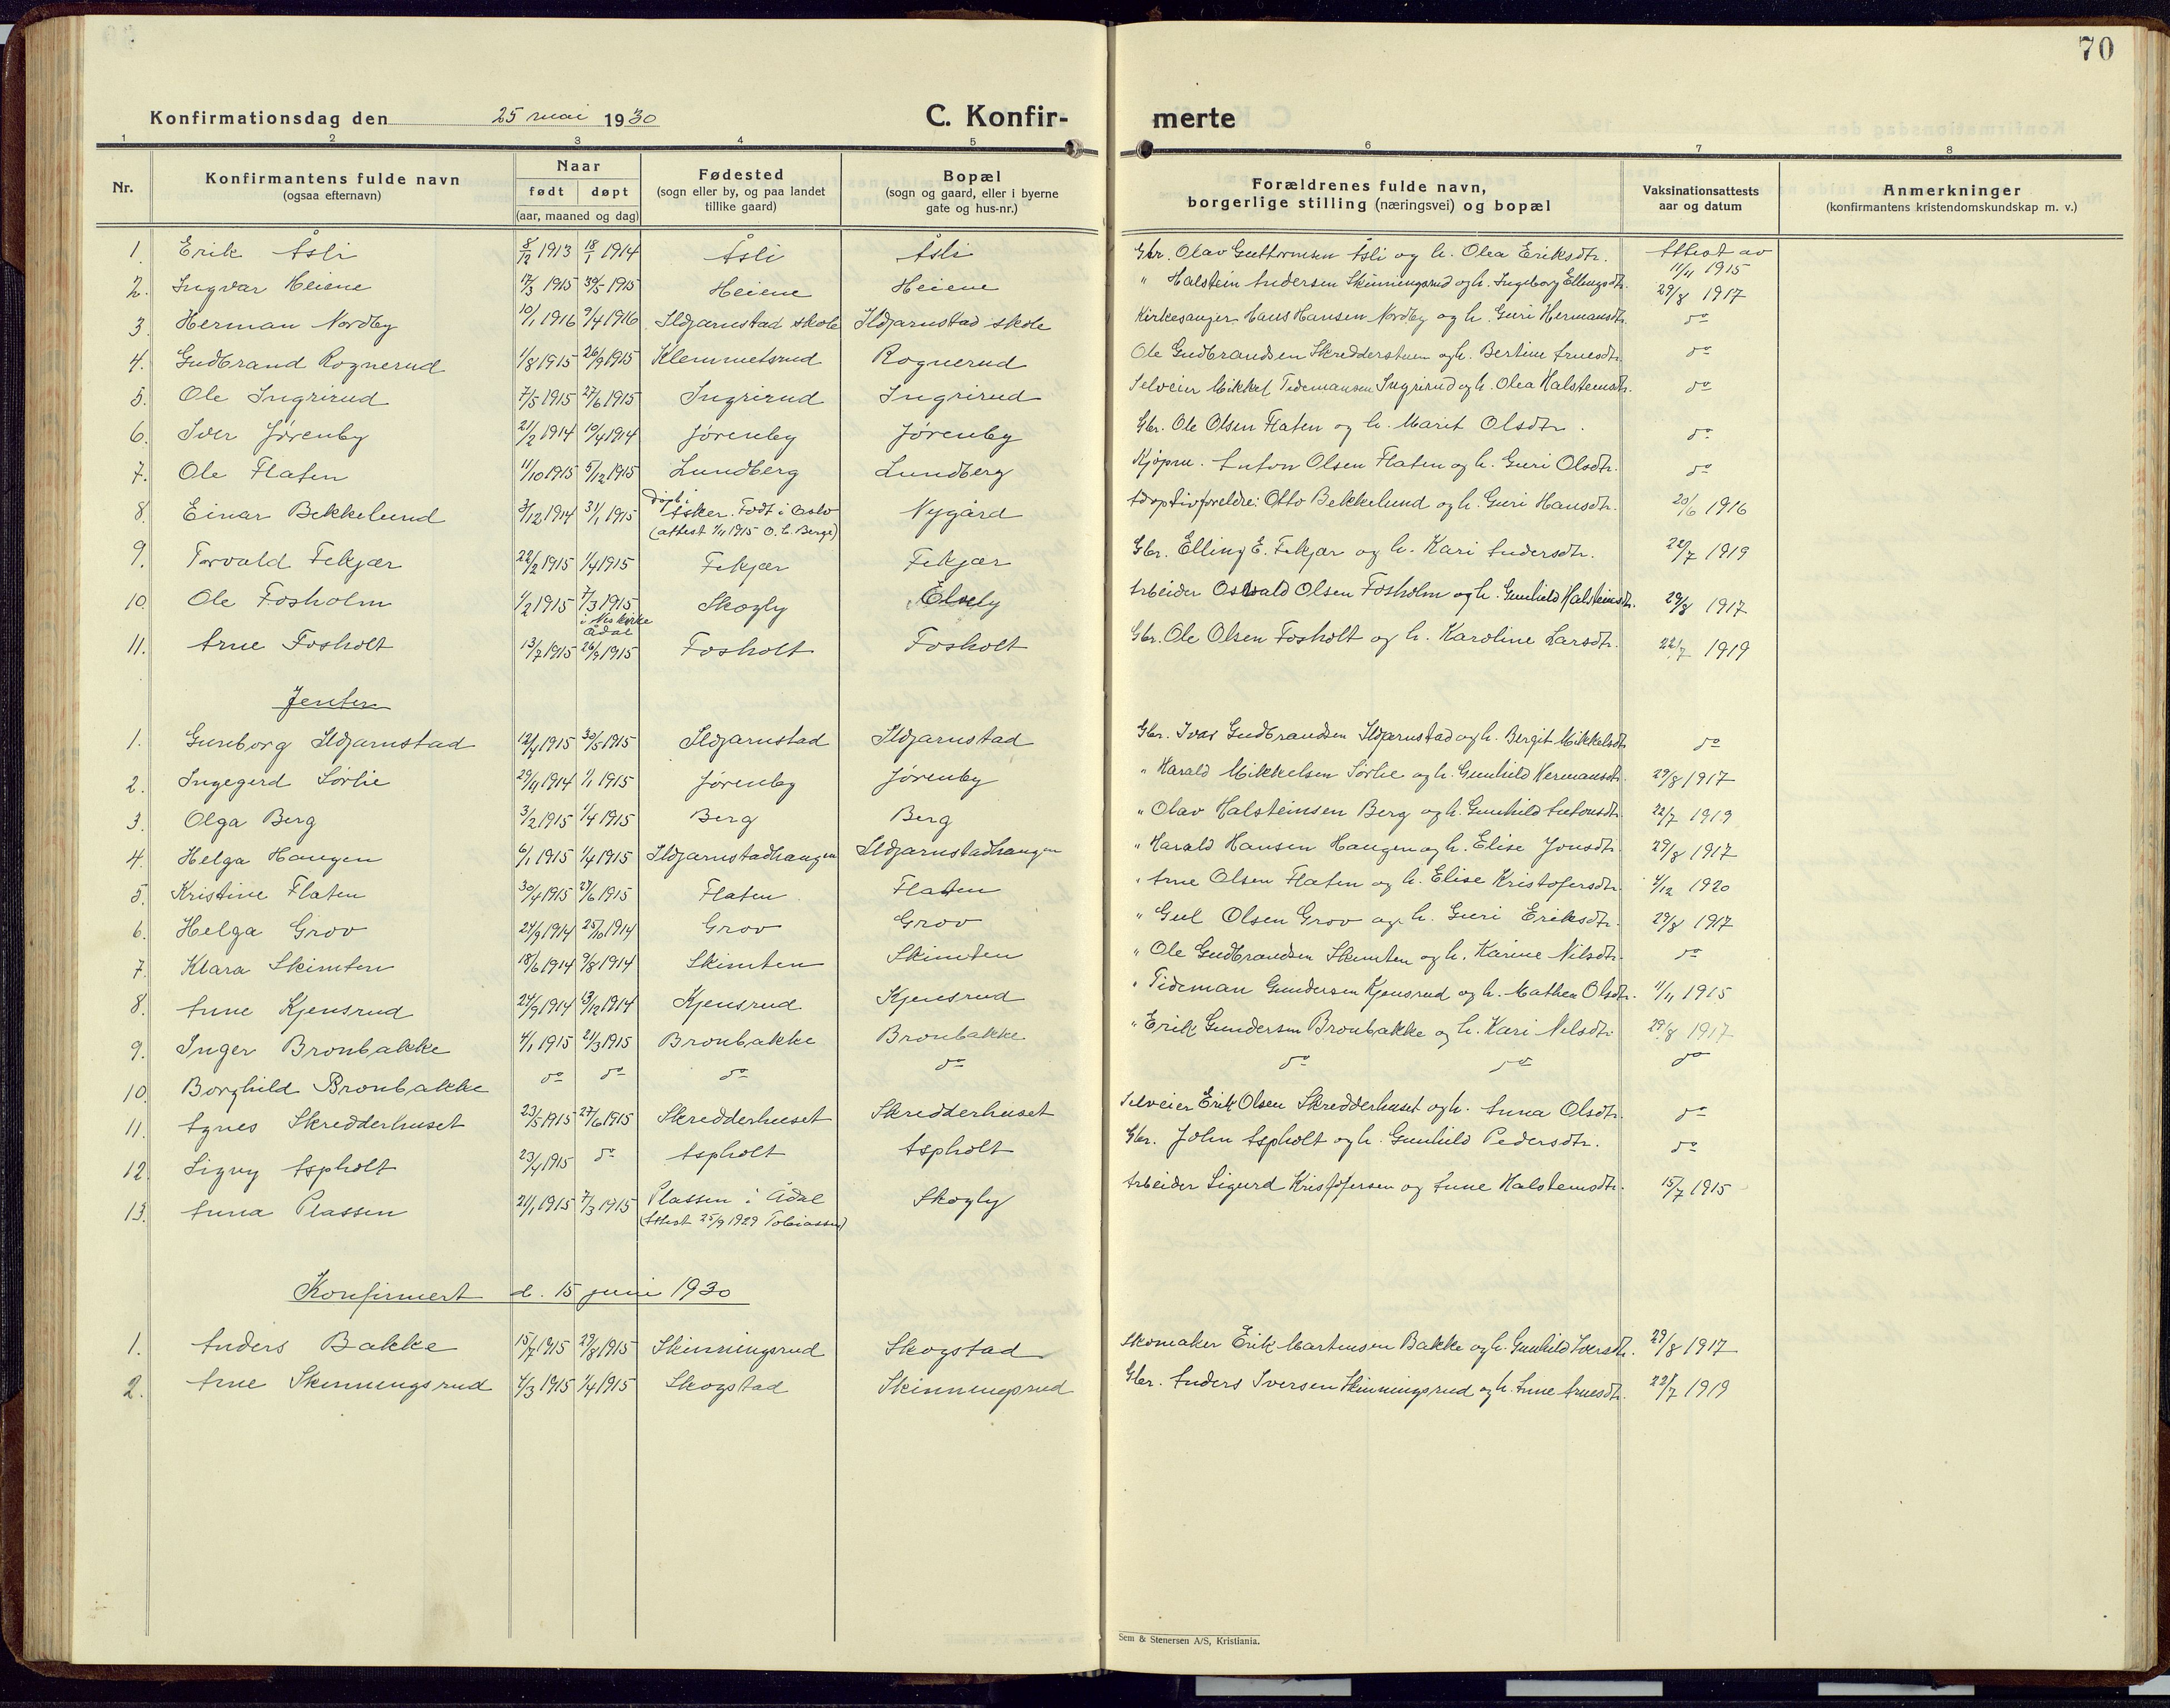 70
Konfirmationsdag den 25 mai 1930 C. Konfir- merte
1 2 3 4 5 6 7 8
Nr. Konfirmantens fulde navn (ogsaa efternavn) Naar født døpt (aar, maaned og dag) Fødested (sogn eller by, og paa landet tillike gaard) Bopæl (sogn og gaard, eller i byerne gate og hus-nr.) Forældrenes fulde navn, borgerlige stilling (næringsvei) og bopæl Vaksinationsattests aar og datum Anmerkninger (konfirmantens kristendomskundskap m. v.)
1. Erik Åsli 8/12 1913 18/1 1914 Åsli Åsli Gbr. Olav Guttormsen Åsli og h. Olea Eriksdtr. Attest av 11/11 1915
2. Ingvar Heiene 17/3 1915 30/5 1915 Heiene Heiene " Halstein Andersen Skinningsrud og h. Ingeborg Ellingsdtr. 29/8 1917
3 Herman Nordby 10/1 1916 9/4 1916 Ildjarnstad skole Ildjarnstad skole Kirkesanger Hans Hansen Nordby og h. Guri Hermansdtr. do
4. Gudbrand Rognerud 1/8 1915 26/9 1915 Klemmetsrud Rognerud Ole Gudbrandsen Skredderstuen og h. Bertine Arnesdtr. do
5. Ole Ingrirud 7/5 1915 27/6 1915 Ingrirud Ingrirud Selveier Mikkel Tidemansen Ingrirud og h. Olea Halsteinsdtr. do
6. Iver Jørenby 21/2 1914 10/4 1914 Jørenby Jørenby Gbr. Ole Olsen Flaten og h. Marit Olsdtr. do
7. Ole Flaten 11/10 1915 5/12 1915 Lundberg Lundberg Kjøpm. Anton Olsen Flaten og h. Guri Olsdtr. do
8. Einar Bekkelund 3/12 1914 31/1 1915 døpt i Asker. Født i Oslo Nygård Adoptivforeldre: Otto Bekkelund og h. Guri Hansdtr. 20/6 1916
(attest 1/11 1915 O. C. Berge)
9. Torvald Fekjær 22/2 1915 1/4 1915 Fekjær Fekjær Gbr. Elling E. Fekjær og h. Kari Andersdtr. 22/7 1919
10. Ole Fosholm 1/2 1915 7/3 1915 Skogly Elvely Arbeider Osvald Olsen Fosholm og h. Gunhild Halsteinsdtr. 29/8 1917
Ådal
11. Arne Fosholt 13/7 1915 26/9 1915 Fosholt Fosholt Gbr. Ole Olsen Fosholt og h. Karoline Larsdtr. 22/7 1919
Jenter
1. Gunborg Ildjarnstad 12/4 1915 30/5 1915 Ildjarnstad Ildjarnstad Gbr. Ivar Gudbrandsen Ildjarnstad og h. Bergit Mikkelsdtr. do
2. Ingegerd Sørlie 29/11 1914 1/1 1915 Jørenby Jørenby " Harald Mikkelsen Sørlie og h. Gunhild Hermansdtr. 29/8 1917
3. Olga Berg 3/2 1915 1/4 1915 Berg Berg " Olav Halsteinsen Berg og h. Gunhild Antonsdtr. 22/7 1919
4. Helga Haugen 6/1 1915 1/4 1915 Ildjarnstadhaugen Ildjarnstadhaugen " Harald Hansen Haugen og h. Elise Jonsdtr. 29/8 1917
5. Kristine Flaten 30/4 1915 27/6 1915 Flaten Flaten " Arne Olsen Flaten og h. Elise Kristofersdtr. 4/12 1920
6. Helga Grov 24/9 1914 25/10 1914 Grov Grov " Gul Olsen Grov og h. Guri Eriksdtr. 29/8 1917
7. Klara Skimten 18/6 1914 9/8 1914 Skimten Skimten " Ole Gudbrandsen Skimten og h. Karine Nilsdtr. do
8. Anne Kjensrud 24/9 1914 13/12 1914 Kjensrud Kjensrud " Tideman Gundersen Kjensrud og h. Mathea Olsdtr. 11/11 1915
9. Inger Bronbakke 4/1 1915 21/3 1915 Bronbakke Bronbakke " Erik Gundersen Bronbakke og h. Kari Nilsdtr. 29/8 1917
10. Borghild Bronbakke do do do do do do do
11. Agnes Skredderhuset 23/5 1915 27/6 1915 Skredderhuset Skredderhuset Selveier Erik Olsen Skredderhuset og h. Anna Olsdtr. do
12. Signy Aspholt 23/4 1915 do Aspholt Aspholt Gbr. John Aspholt og h. Gunhild Pedersdtr. do
13. Anna Plassen 21/1 1915 7/3 1915 Plassen i Ådal Skogly Arbeider Sigurd Kristofersen og Anne Halsteinsdtr. 15/7 1915
(Attest 25/9 1929 Tobiassen)
Konfirmert d. 15 juni 1930
1. Anders Bakke 15/7 1915 29/8 1915 Skinningsrud Skogstad Skomaker Erik Martinsen Bakke og h. Gunhild Iversdtr. 29/8 1917
2. Arne Skinningsrud 4/3 1915 1/4 1915 Skogstad Skinningsrud Gbr. Anders Iversen Skinningsrud og h. Anne Arnesdtr. 22/7 1919
Sem & Stenersen A/S, Kristiania.